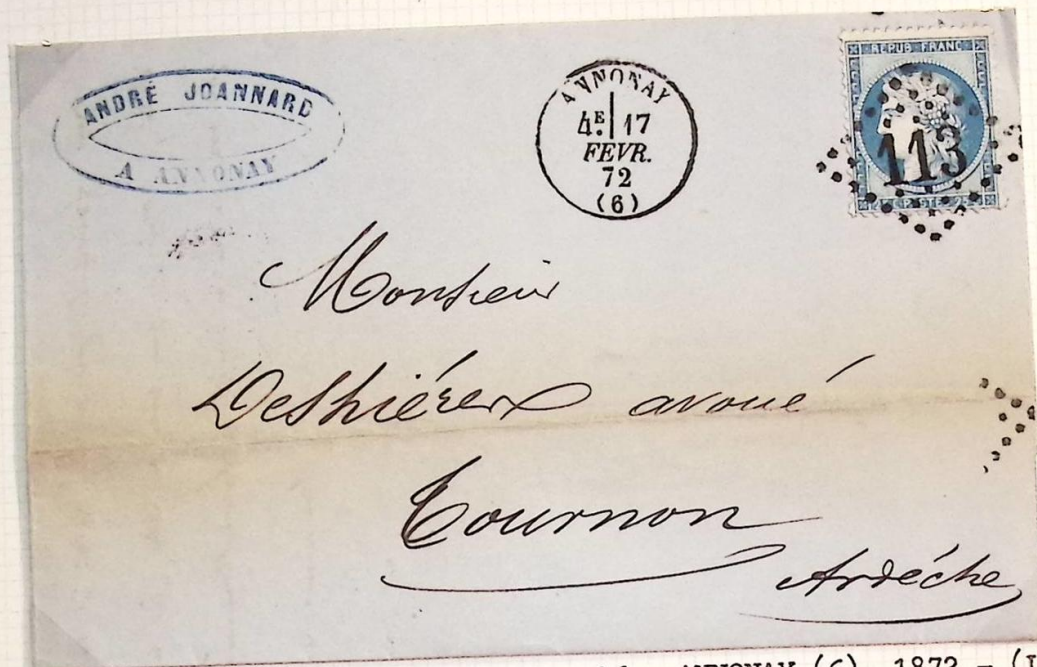 ANDRÉ JOANNARD
A ANNONAY
ANNONAY
4E. 17
FEVR.
72
(6)
REPUB FRANC
113
Monsieur
avoué
Tournon
Ardéche
ANNONAY (6) 1872 - (I